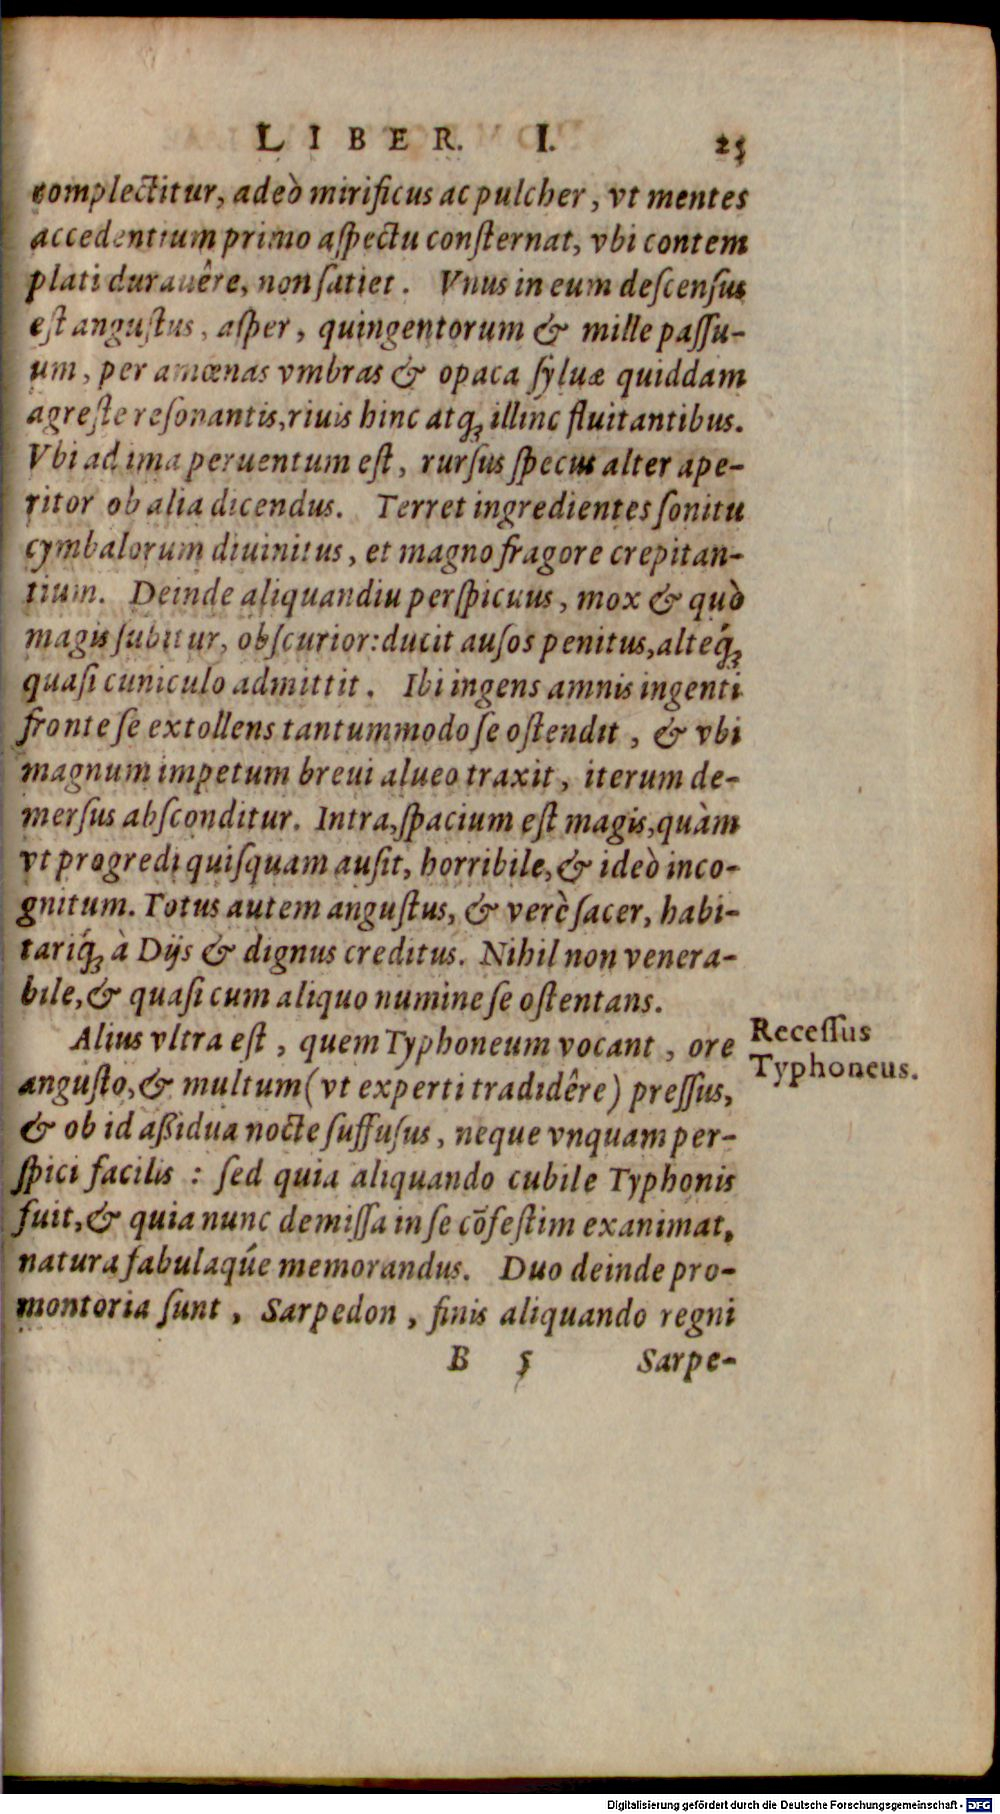 LIBER. I. 25
complectitur, adeò mirificus ac pulcher, vt mentes
accedentium primo aſpectu conſternat, vbi contem
plati durauêre, non ſatiet. Vnus in eum deſcenſus
eſt anguſtus, aſper, quingentorum & mille paſſu-
um, per amœnas vmbras & opaca ſyluæ quiddam
agreſte reſonantis, riuis hinc atq; illinc fluitantibus.
Vbi ad ima peruentum eſt, rurſus ſpecus alter ape-
ritor ob alia dicendus. Terret ingredientes ſonitu
cymbalorum diuinitus, et magno fragore crepitan-
tium. Deinde aliquandiu perſpicuus, mox & quò
magis ſubitur, obſcurior: ducit auſos penitus, alteq́;
quaſi cuniculo admittit. Ibi ingens amnis ingenti
fronte ſe extollens tantummodo ſe oſtendit, & vbi
magnum impetum breui alueo traxit, iterum de-
merſus abſconditur. Intra, ſpacium eſt magis, quàm
vt progredi quiſquam auſit, horribile, & ideò inco-
gnitum. Totus autem anguſtus, & verè ſacer, habi-
tariq́; à Dijs & dignus creditus. Nihil non venera-
bile, & quaſi cum aliquo numine ſe oſtentans.
Alius vltra eſt, quem Typhoneum vocant, ore
anguſto, & multum (vt experti tradidêre) preſſus,
& ob id aßidua nocte ſuffuſus, neque vnquam per-
ſpici facilis : ſed quia aliquando cubile Typhonis
fuit, & quia nunc demiſſa in ſe cõfeſtim exanimat,
natura fabulaqúe memorandus. Duo deinde pro-
montoria ſunt, Sarpedon, finis aliquando regni
B 5 Sarpe-
Receſſus
Typhoneus.
Digitalisierung gefördert durch die Deutsche Forschungsgemeinschaft - DFG